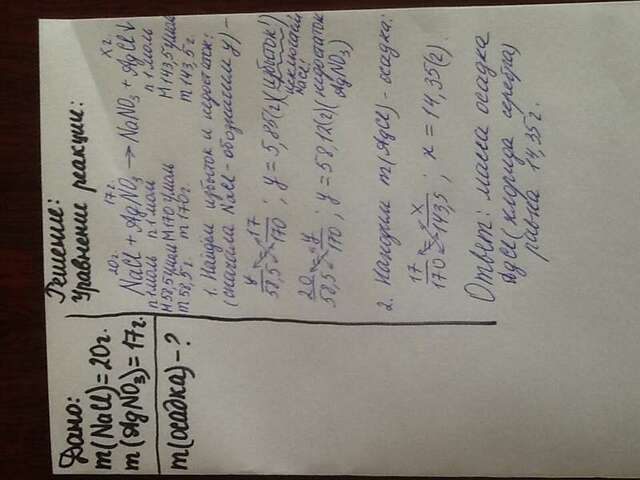 Дано:
m(NaCl)=20г.
m(AgNO₃)=17г.
m(осадка)-?
Решение:
Уравнение реакции:
20г. 17г. Xг.
NaCl + AgNO₃ → NaNO₃ + AgCl↓
n 1 моль n 1 моль n 1 моль
M 58,5г/моль M 170г/моль M 143,5г/моль
m 58,5г. m 170г. m 143,5г.
1. Найдём избыток и недостаток:
(сначала NaCl - обозначим y) -
y/58,5 = 17/170 ; y = 5,85(г)(избыток!)
исключаем
NaCl!
20/58,5 = y/170 ; y = 58,12(г)(недостаток
AgNO₃)
2. Находим m(AgCl) - осадка:
17/170 = x/143,5 ; x = 14,35(г).
Ответ: масса осадка
AgCl (хлорида серебра)
равна 14,35г.